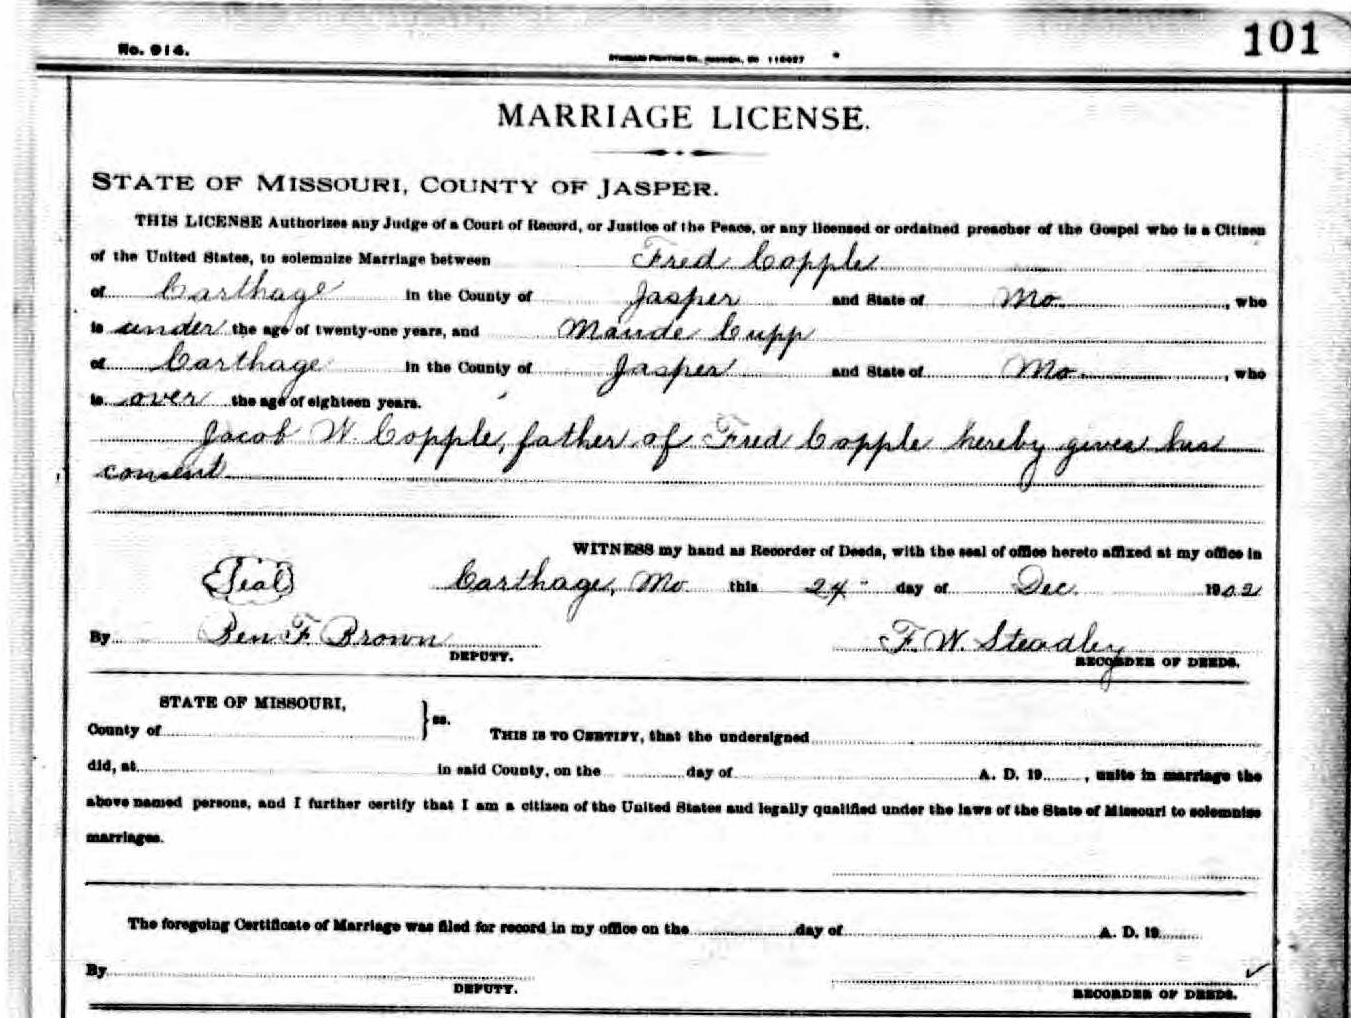 101
No. 914.
MARRIAGE LICENSE.
STATE OF MISSOURI, COUNTY OF JASPER.
THIS LICENSE Authorizes any Judge of a Court of Record, or Justice of the Peace, or any licensed or ordained preacher of the Gospel who is a Citizen
of the United States, to solemnize Marriage between Fred Copple
of Carthage in the County of Jasper and State of Mo. , who
is under the age of twenty-one years, and Maude Cupp
of Carthage in the County of Jasper and State of Mo. , who
is over the age of eighteen years.
Jacob W. Copple, father of Fred Copple hereby gives his
consent
WITNESS my hand as Recorder of Deeds, with the seal of office hereto affixed at my office in
Seal Carthage, Mo. this 24" day of Dec. 1902
By Ben F. Brown F. W. Steadley
DEPUTY. RECORDER OF DEEDS.
STATE OF MISSOURI,
County of } ss. THIS IS TO CERTIFY, that the undersigned
did, at in said County, on the day of A. D. 19 , unite in marriage the
above named persons, and I further certify that I am a citizen of the United States and legally qualified under the laws of the State of Missouri to solemnize
marriages.
The foregoing Certificate of Marriage was filed for record in my office on the day of A. D. 19
By
DEPUTY. RECORDER OF DEEDS.